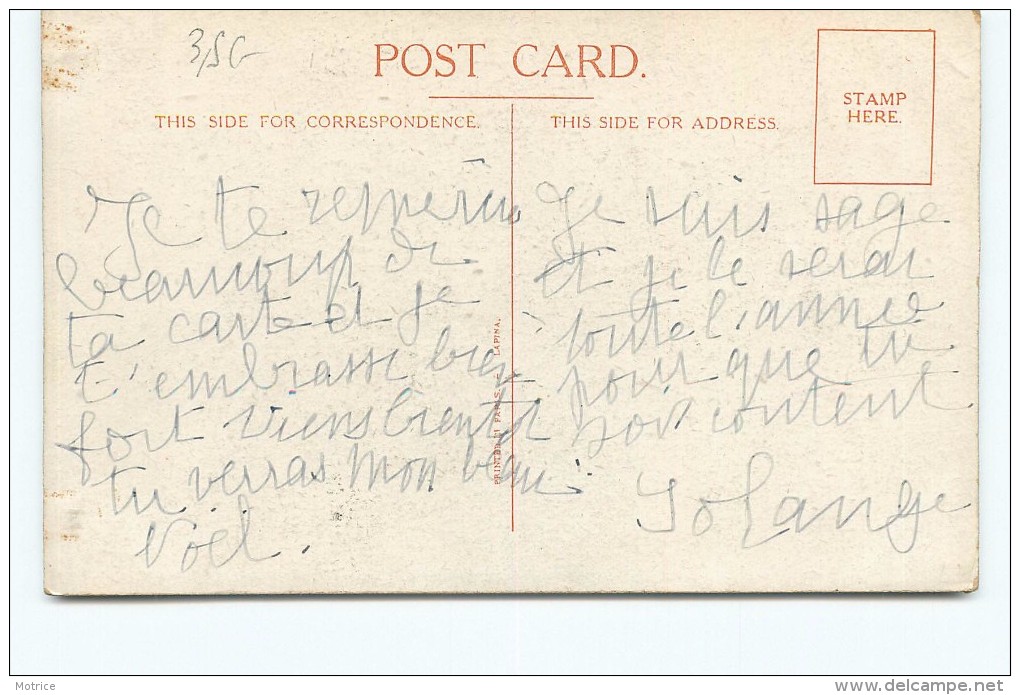 POST CARD.
THIS SIDE FOR CORRESPONDENCE.
THIS SIDE FOR ADDRESS.
STAMP
HERE.
Je te remercie
beaucoup de
ta carte et je
t'embrasse bien
fort viens bientot
tu verras mon beau
Noël.
PRINTED IN PARIS. – LAPINA.
Je suis sage
et je le serai
toute l'année
pour que tu
sois content
Solange
Motrice
delcampe.net